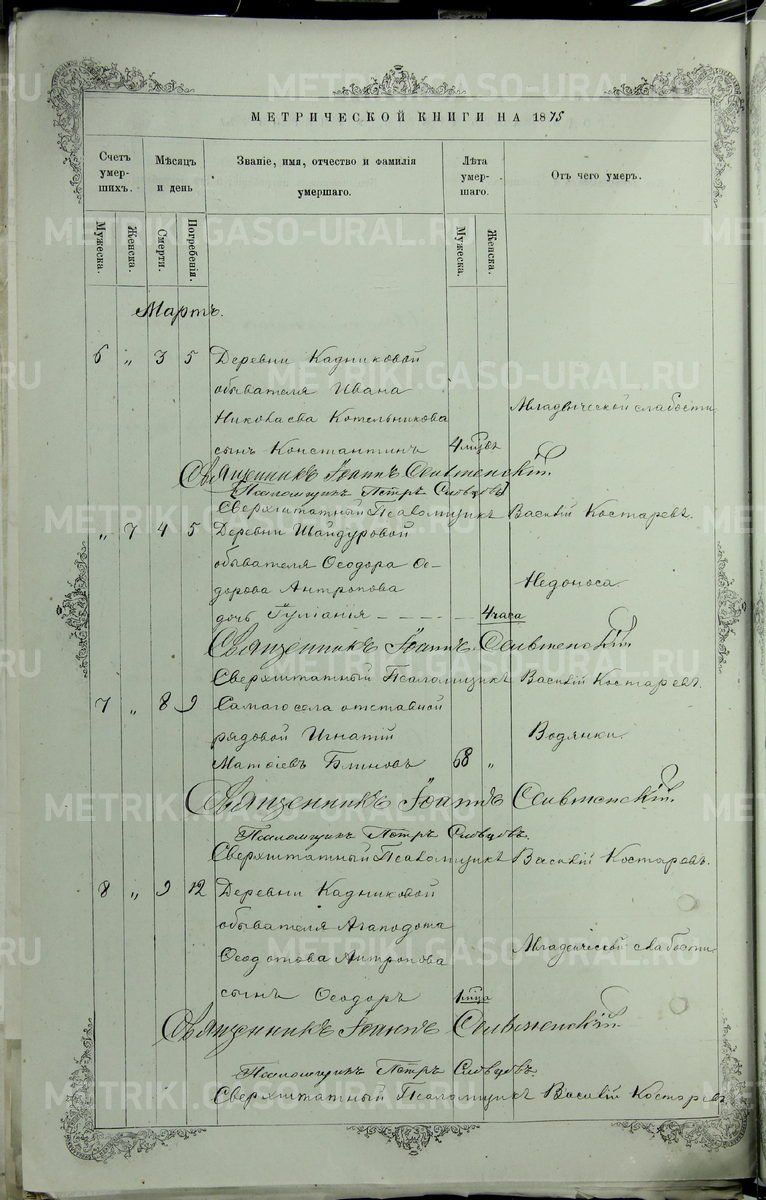 МЕТРИЧЕСКОЙ КНИГИ НА 1875
Счетъ умер- шихъ.
Мѣсяцъ и день
Званіе, имя, отчество и фамилія умершаго.
Лѣта умер- шаго.
Отъ чего умеръ.
Мужеска. Женска. Смерти. Погребенія. Мужеска. Женска.
Мартъ.
6 „ 3 5 Деревни Кадниковой
обывателя Ивана
Николаева Котельникова Младенческой слабости
сынъ Константинъ 4 мѣс.
Священникъ Іоаннъ
Псаломщикъ Петръ Словцовъ
Сверхштатный Псаломщикъ Василій Костаревъ.
„ 7 4 5 Деревни Шайдуровой
обывателя Ѳеодора Ѳе-
дорова Антропова Недоноса.
дочь Іуліанія 4 часа
Священникъ Іоаннъ
Сверхштатный Псаломщикъ Василій Костаревъ.
7 „ 8 9 Самаго села отставной
рядовой Игнатій Водянки.
Матѳіевъ Блиновъ 68 „
Священникъ Іоаннъ
Псаломщикъ Петръ Словцовъ.
Сверхштатный Псаломщикъ Василій Костаревъ.
8 „ 9 12 Деревни Кадниковой
обывателя Агаподота
Ѳеодотова Антропова Младенческой слабости
сынъ Ѳеодоръ
Священникъ Іоаннъ
Псаломщикъ Петръ Словцовъ.
Сверхштатный Псаломщикъ Василій Костаревъ
METRIKI.GASO-URAL.RU